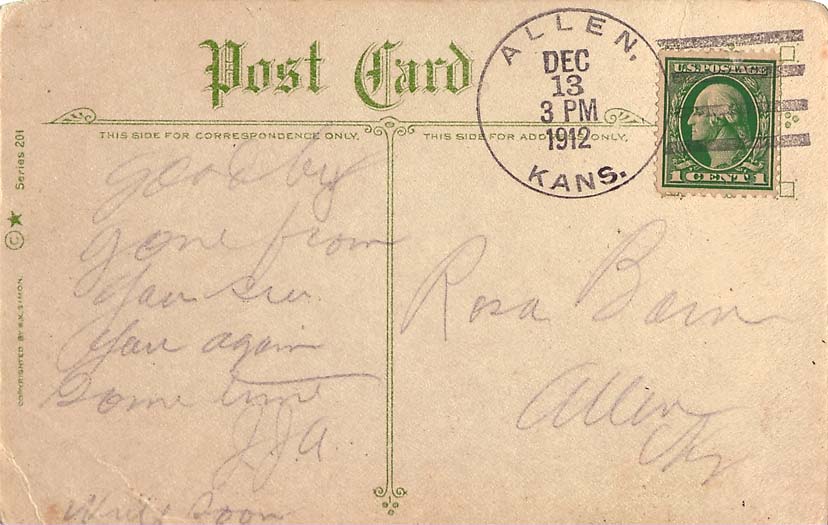 Post Card
ALLEN,
DEC
13
3 PM
1912
KANS.
U.S. POSTAGE
1 CENT 1
THIS SIDE FOR CORRESPONDENCE ONLY.
THIS SIDE FOR ADD ONLY.
Series 201
©
COPYRIGHTED BY S.K. SIMON.
good by
gone from
you see
you again
some time
J.J.A.
Write Soon
Rosa
Allen